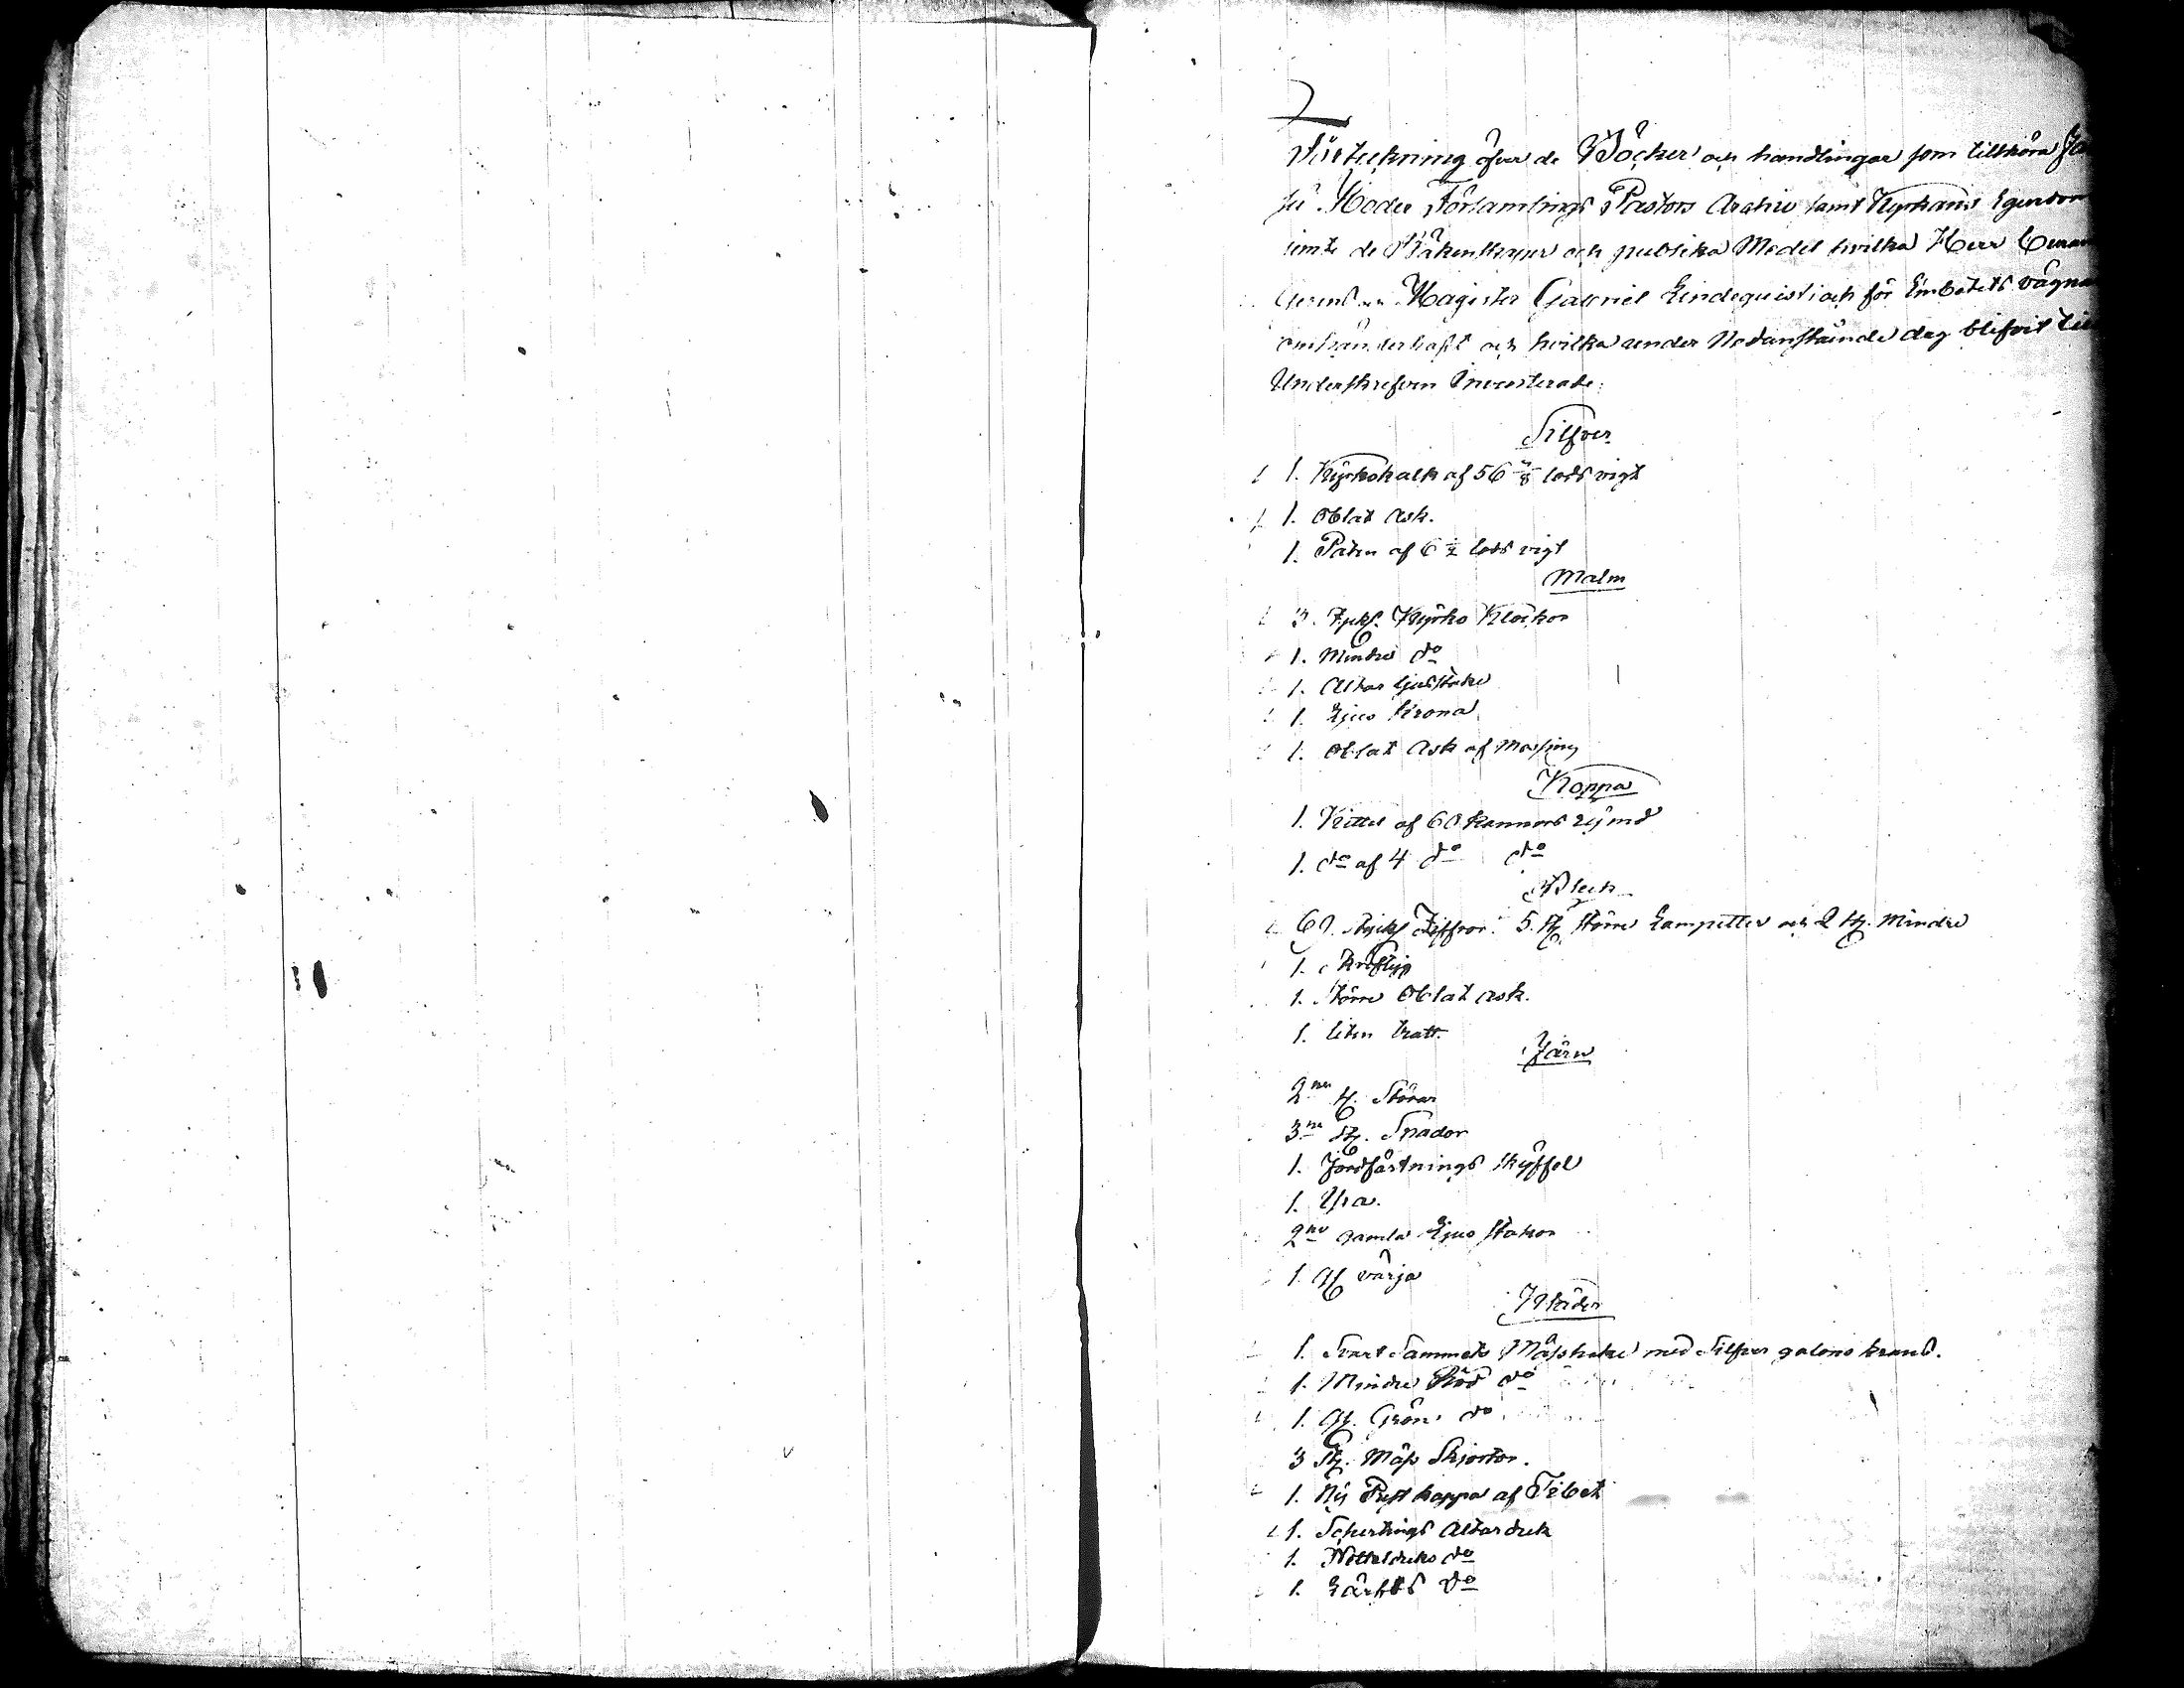 Förteckning öfver de Böcker och handlingar som tillhöra
Moder Församlings Pastors Archiv samt Kyrkans Egendom
jemte de Räkenskaper och publika Medel hvilka Herr
Magister Gabriel Lindequist och för Embetets vägnar
omhänderhaft och hvilka under Nedanstående dag blifvit
Underskrefven Inventerade:
Silfver
1. Kyrkokalk af 56 7/8 lods vigt
1. Oblat Ask.
1. Paten af 6 1/2 lods vigt
Malm
3. Kyrko Klockor
1. Mindre do
1. Altar ljusstake
1. Ljus krona
1. Oblat Ask af Messing
Koppa
1. Kittel af 60 kannors rymd
1. do af 4 do do
Bleck
60. Ziffror. 5. st. större Lampetter och 2 st. Mindre
1.
1. Större Oblat ask.
1. liten tratt.
Järn
2ne st. Störar
3ne st. Spador
1. Jordfästnings skyffel
1. Yxa.
2ne gamla Ljus stakar
1. gl. värja
Kläder
1. Svart Sammets Mässhake med Silfver galons krans.
1. Mindre Röd do
1. gl. Grön do
3 st. Mäss Skjortor.
1. Ny Prest kappa af Tibet
1. Schertings Altarduk
1. Nättelduks do
1. Lärfts do